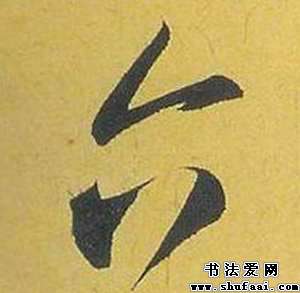 台
书法爱网
www.shufaai.com